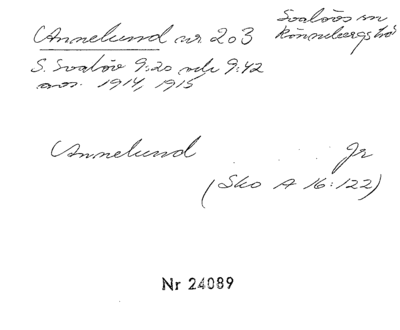 Annelund nr 203
Svalövs sn
Rönnebergs hd
S. Svalöv 9:20 och 9:42
avs. 1914, 1915
Annelund Jr
(Sko A 16:122)
Nr 24089